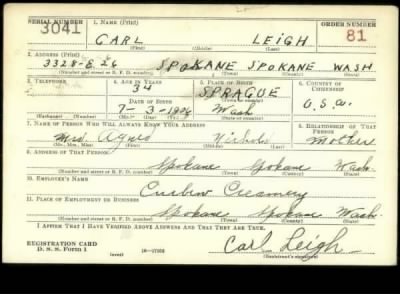 SERIAL NUMBER 1. NAME (Print) ORDER NUMBER
3041 CARL LEIGH 81
(First) (Middle) (Last)
2. ADDRESS (Print)
3328-E 26 SPOKANE SPOKANE WASH
(Number and street or R. F. D. number) (Town) (County) (State)
3. TELEPHONE 4. AGE IN YEARS 5. PLACE OF BIRTH 6. COUNTRY OF CITIZENSHIP
34 SPRAGUE
DATE OF BIRTH (Town or county)
7-3-1906 Wash U.S.A.
(Exchange) (Number) (Mo.) (Day) (Yr.) (State or country)
7. NAME OF PERSON WHO WILL ALWAYS KNOW YOUR ADDRESS 8. RELATIONSHIP OF THAT PERSON
Mrs. Agnes Nichols Mother
(Mr., Mrs., Miss) (First) (Middle) (Last)
9. ADDRESS OF THAT PERSON
Spokane Spokane Wash.
(Number and street or R. F. D. number) (Town) (County) (State)
10. EMPLOYER'S NAME
Creamery
11. PLACE OF EMPLOYMENT OR BUSINESS
Spokane Spokane Wash.
(Number and street or R. F. D. number) (Town) (County) (State)
I AFFIRM THAT I HAVE VERIFIED ABOVE ANSWERS AND THAT THEY ARE TRUE.
REGISTRATION CARD
D. S. S. Form 1 (over) Carl Leigh
(Registrant's signature)